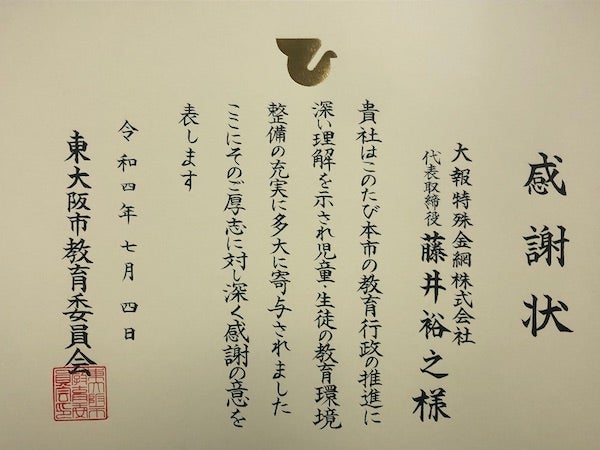 感謝状
大報特殊金網株式会社
代表取締役 藤井裕之様
貴社はこのたび本市の教育行政の推進に
深い理解を示され児童・生徒の教育環境
整備の充実に多大に寄与されました
ここにそのご厚志に対し深く感謝の意を
表します
令和四年七月四日
東大阪市教育委員会